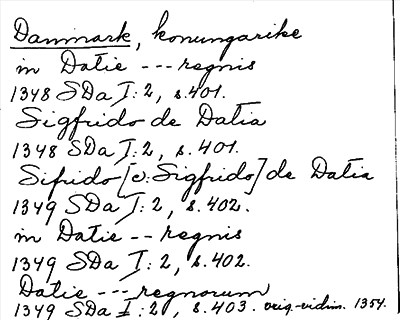 Danmark, konungarike
in Datie --- regnis
1348 SDa I: 2, s. 401.
Sigfrido de Datia
1348 SDa I: 2, s. 401.
Sifrido [o: Sigfrido] de Datia
1349 SDa I: 2, s. 402.
in Datie -- regnis
1349 SDa I: 2, s. 402.
Datie --- regnorum
1349 SDa I: 2, s. 403. orig.-vidim. 1354.